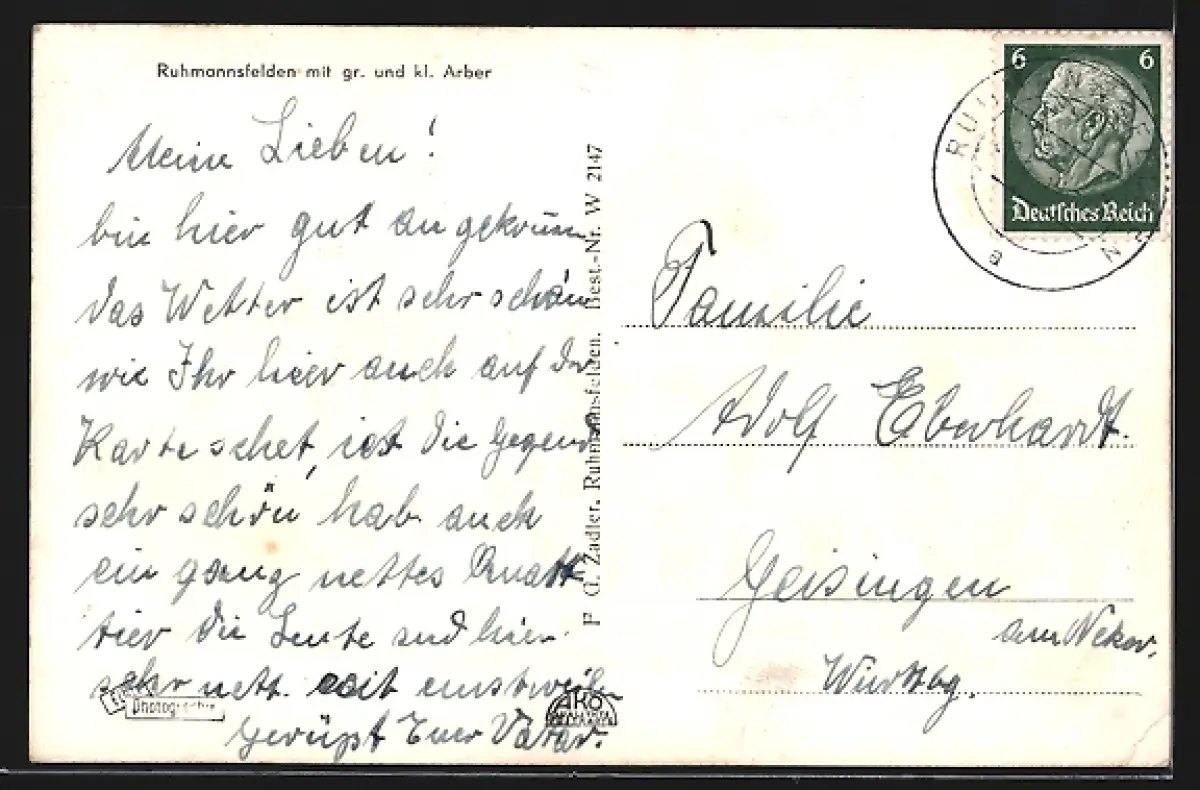 Ruhmannsfelden mit gr. und kl. Arber
Meine Lieben!
bin hier gut angekomm
das Wetter ist sehr schön
wie Ihr hier auch auf der
Karte sehet, ist die Gegend
sehr schön hab auch
ein ganz nettes Quatt
tier die Leute sind hier
sehr nett. seit einstweilen
gerüßt Euer Vater.
F. G. Zadler, Ruhmannsfelden. Best.-Nr. W 2147
6 6
Deutsches Reich
RUHMANNSFELDEN
a
Familie
Adolf Eberhardt.
Geisingen
am Nekar,
Württbg.
Photographie
AKO